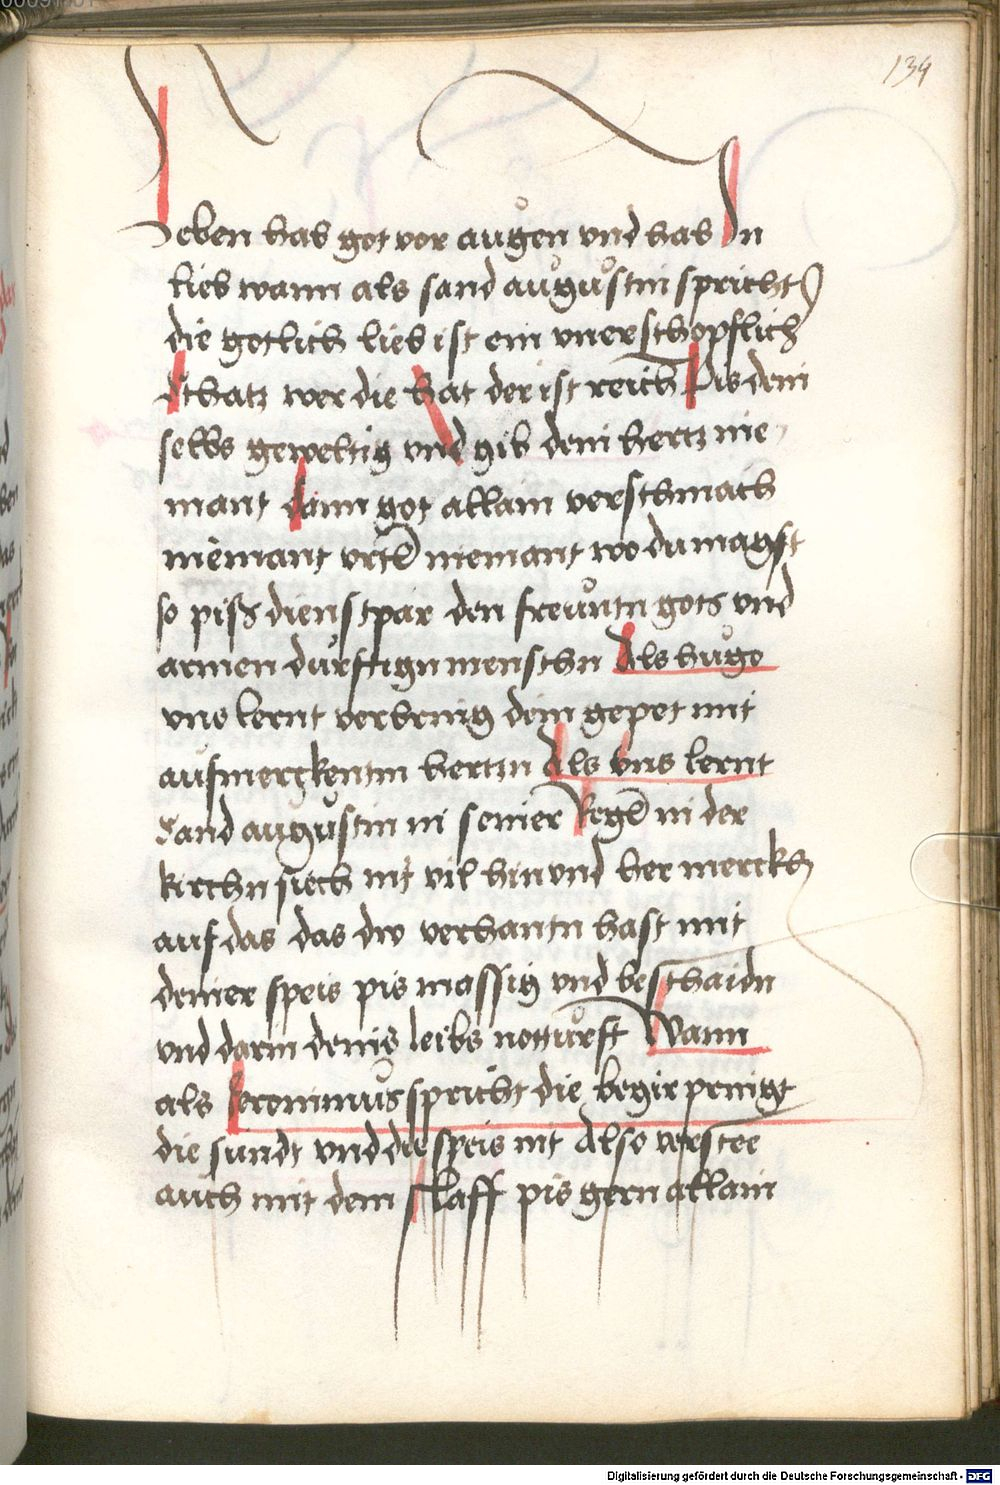 134
Leben hab got vor augen vnd hab In
lieb wann als sand augustin spricht
die gotlich lieb ist ein vnerschopflich
schatz wer die hat der ist reich Pis dein
selbs geweltig vnd gib dein hertz nie
mant dann got allain verschmach
niemant vrtl niemant wo du magst
so piss dienstpar den freuntn gots vnd
armen durftign menschn Als hugo
vns lernt verbring dein gepet mit
aufmerckentm hertzn Als vns lernt
Sand augustin in seiner Regl in der
kirchn siech nit vil hin vnd her merckh
auf das das dw verhantn hast mit
deiner speis pis massig vnd beschaidn
vnd darin deins leibs notturft Wann
als Jeronimus spricht die begir prnigt
die sundt vnd die speis nit Also verstee
auch mit dem slaff pis gern allain
Digitalisierung gefördert durch die Deutsche Forschungsgemeinschaft - DFG